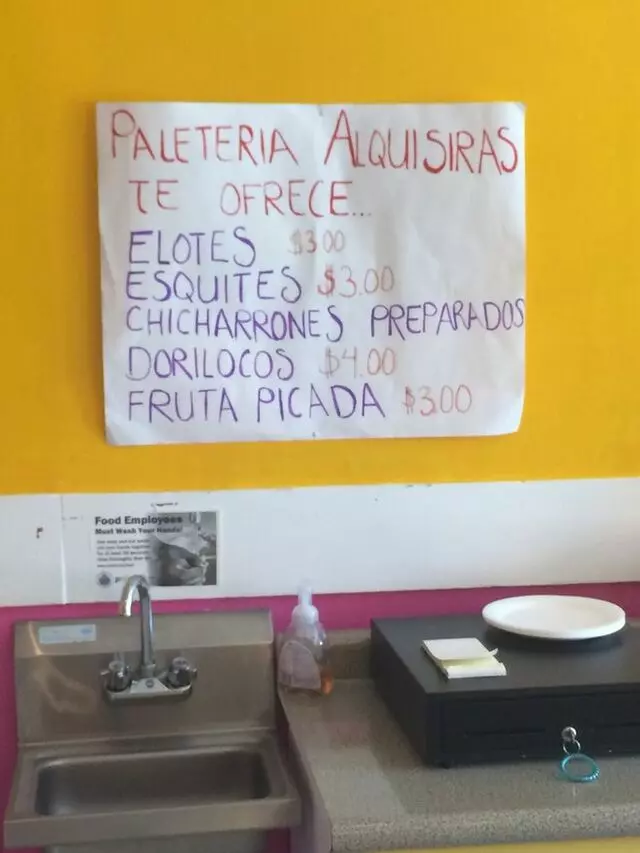 PALETERIA ALQUISIRAS
TE OFRECE...
ELOTES $3.00
ESQUITES $3.00
CHICHARRONES PREPARADOS
DORILOCOS $4.00
FRUTA PICADA $3.00
Food Employees
Must Wash Your Hands!